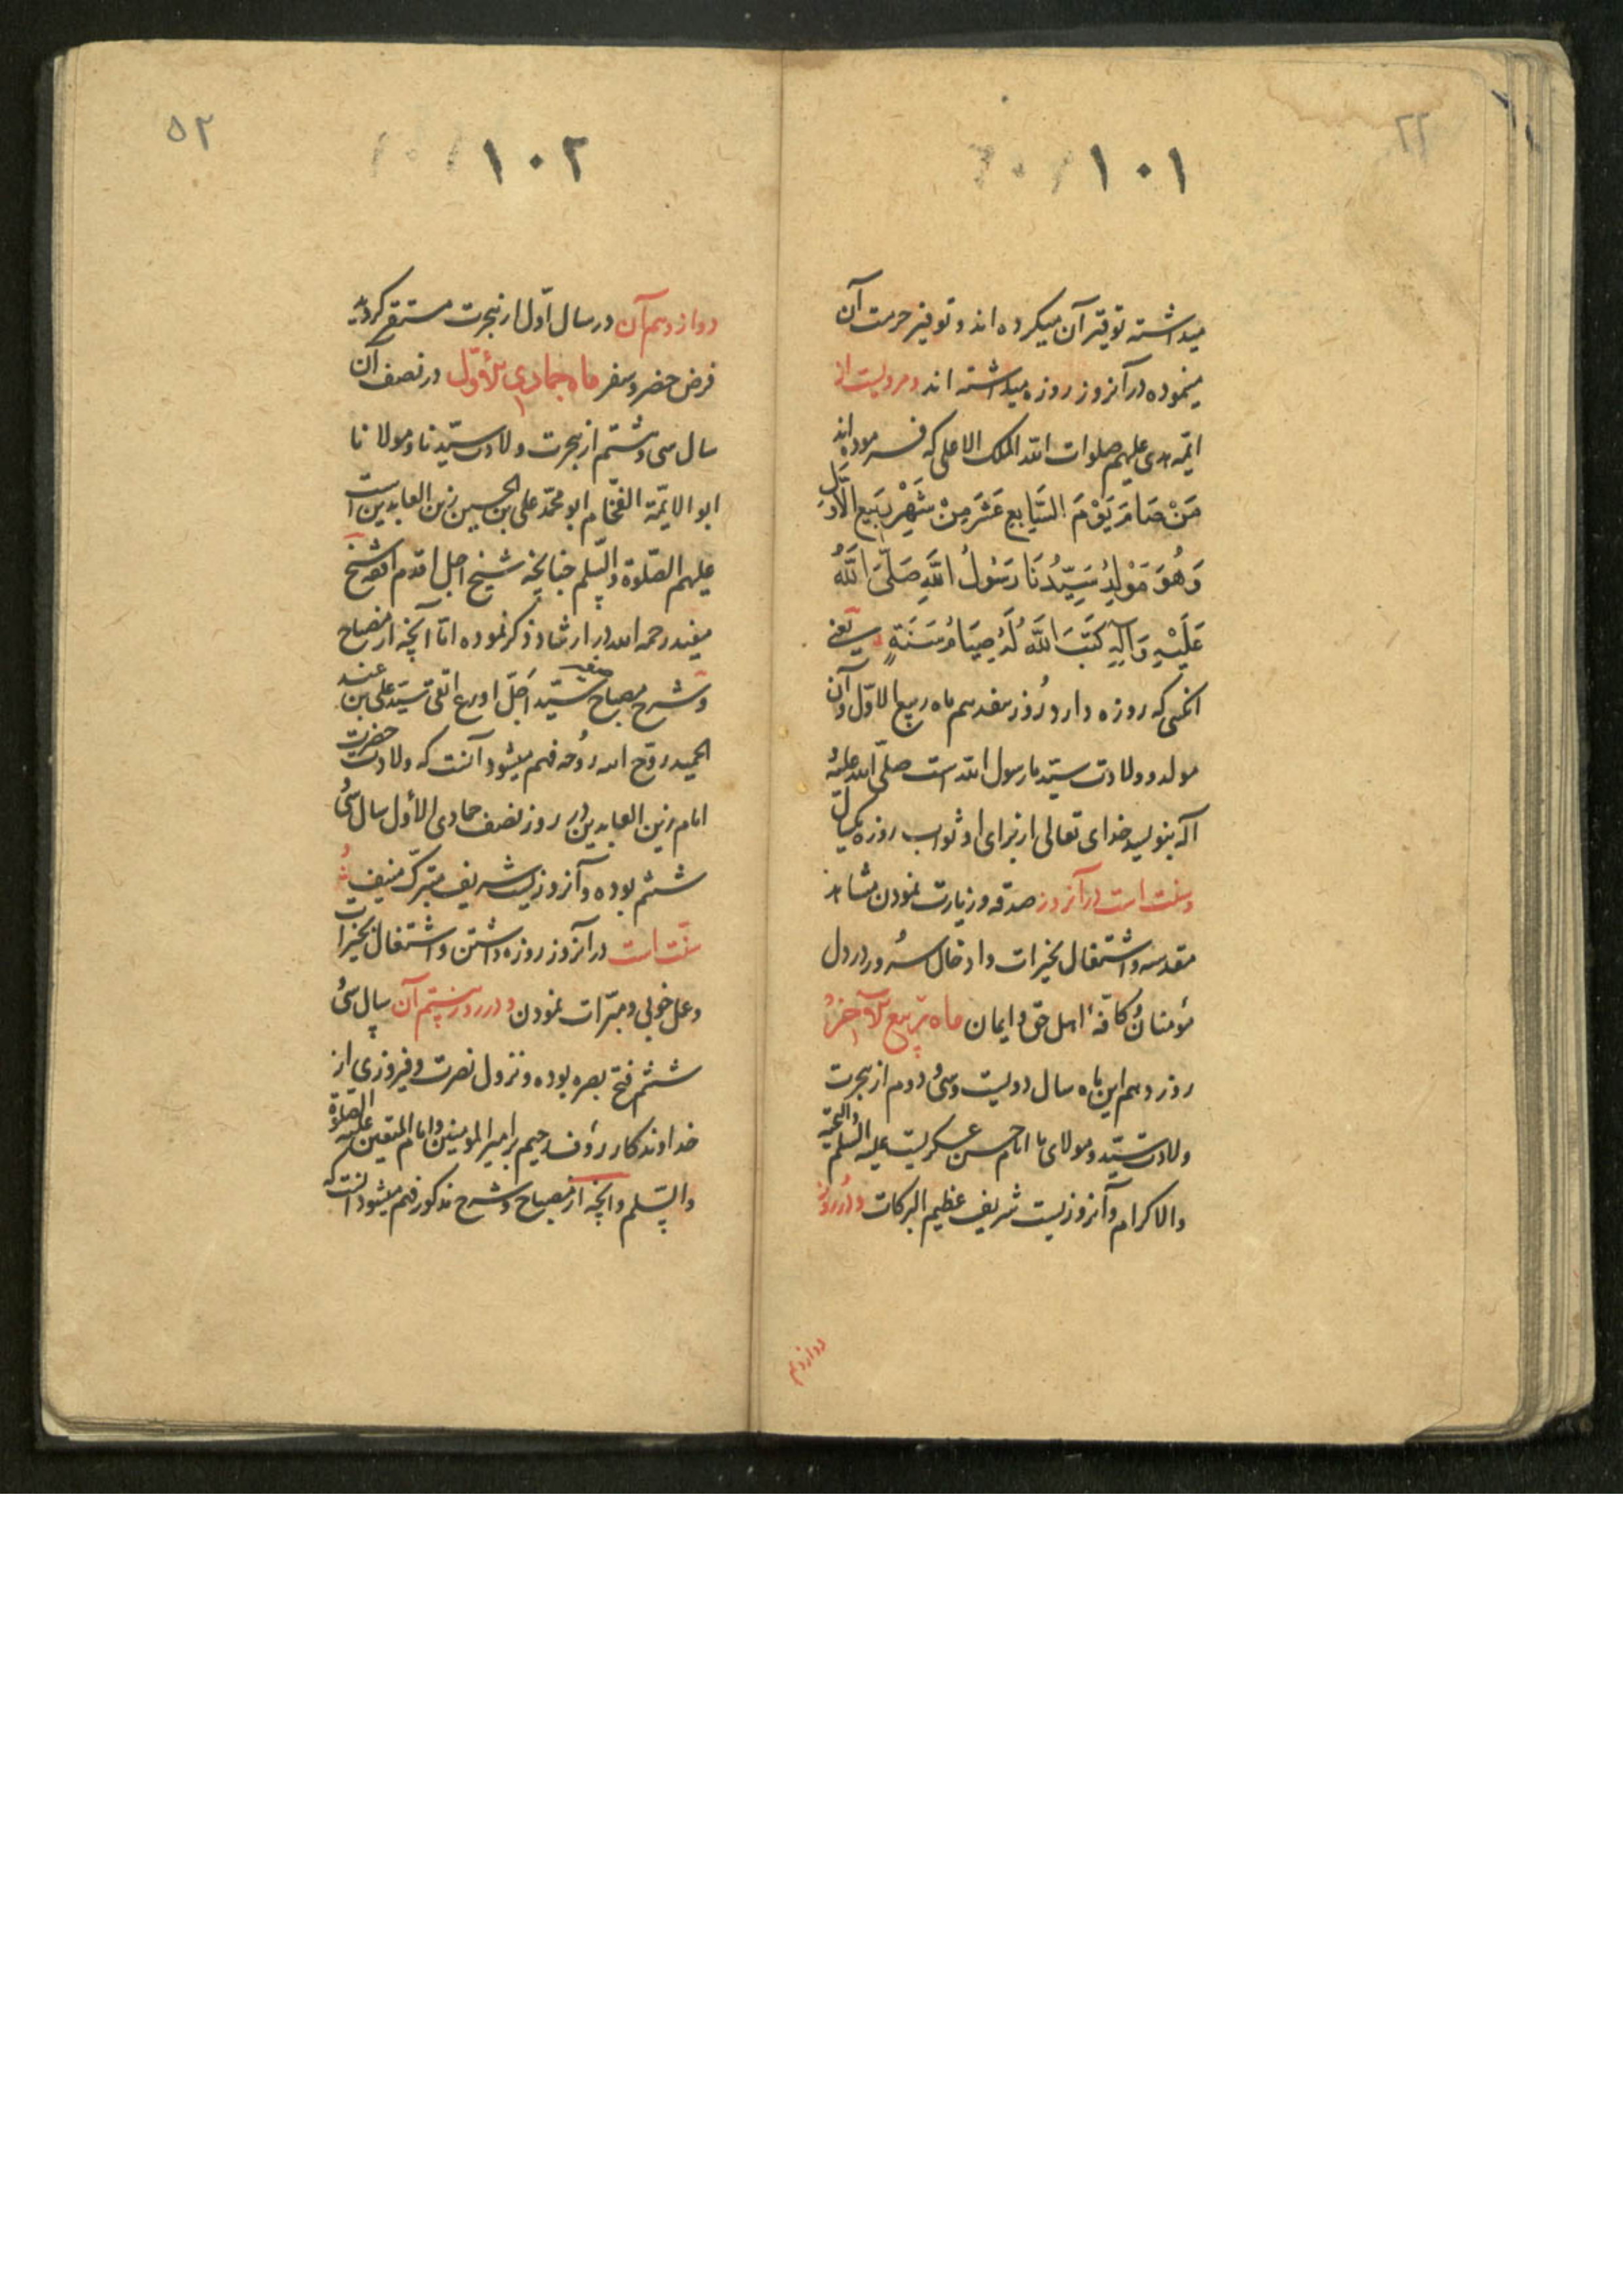 ۱۰۱
میداشته توقیر آن میکرده اند و توفیر حرمت آن
مینموده در آنروز روزه میداشته اند و مرویست از
ائمه هدی علیهم صلوات الله الملک الاعلی که فرموده اند
مَنْ صَامَ يَوْمَ السَّابِعِ عَشَرَ مِنْ شَهْرِ رَبِيعِ الْأَوَّلِ
وَهُوَ مَوْلِدُ سَيِّدُنَا رَسُولُ اللَّهِ صَلَّى اللَّهُ
عَلَيْهِ وَآلِهِ كَتَبَ اللَّهُ لَهُ صِيَامُ سَنَةٍ یعنی
آنکسی که روزه دارد روز هفدهم ماه ربیع الاوّل و آن
مولد و ولادت سیّد ما رسول الله است صلّی الله علیه و
آله بنویسد خدای تعالی از برای او ثواب روزه یکسال
و سنت است در آنروز صدقه و زیارت نمودن مشاهد
مقدسه و اشتغال بخیرات و ادخال سُرور در دل
مؤمنان و کافّهٔ اهل حق و ایمان ماه ربیع الآخر
روز دهم این ماه سال دویست و سی و دوم از هجرت
ولادت سیّد و مولای ما امام حسن عسکریست علیه السلم والتحیه
والاکرام و آنروزیست شریف عظیم البرکات و در روز
دوازدهم
۵۲
۱۰۲
دوازدهم آن در سال اوّل از هجرت مستقر گردید
فرض حضر و سفر ماه جمادی الاوّل در نصف آن
سال سی و ششم از هجرت ولادت سیّدنا و مولانا
ابو الائمّة الفخام ابو محمّد علی بن الحسین زین العابدین است
علیهم الصّلوة والسّلم چنانچه شیخ اجل اقدم افقه شیخ
مفید رحمه الله در ارشاد ذکر نموده امّا آنچه از مصباح
و شرح مصباح سیّد اجلّ اورع اتقی سیّد علی بن عبد
الحمید روّح الله روحه فهم میشود آنست که ولادت حضرت
امام زین العابدین در روز نصف جمادی الأول سال سی و
ششم بوده و آنروزیست شریف متبرّک منیف و
سنّت است در آنروز روزه داشتن و اشتغال بخیرات
و عمل خوبی و مبرّات نمودن و در روز بیستم آن سال سی و
ششم فتح بصره بوده و نزول نصرت و فیروزی از
خداوندکار رؤف رحیم بر امیرالمومنین و امام المتقین علیه الصلوة
والسّلم و آنچه از مصباح و شرح مذکور فهم میشود آنست که